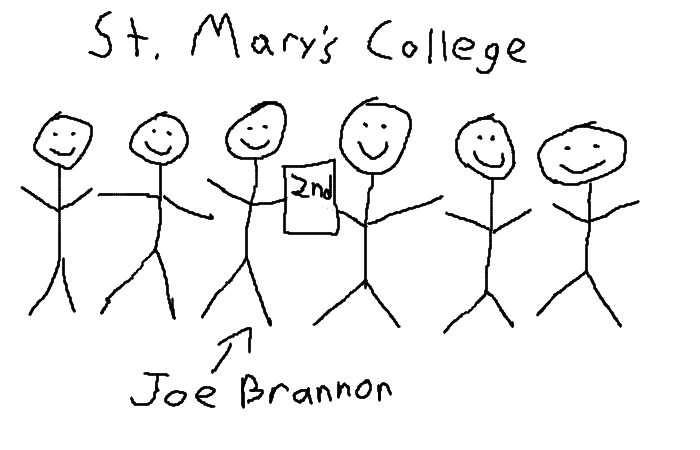 St. Mary's College
2nd
Joe Brannon